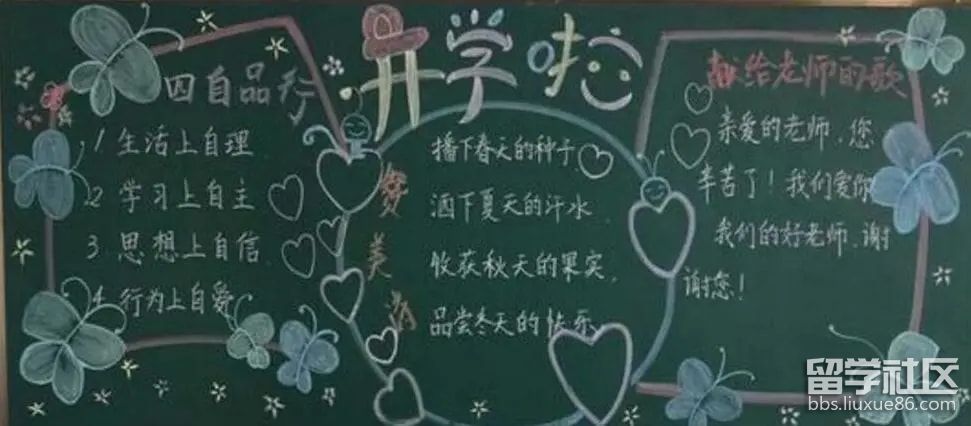 开学啦
四自品行
1 生活上自理
2 学习上自主
3 思想上自信
4 行为上自爱
播下春天的种子
洒下夏天的汗水
收获秋天的果实
品尝冬天的快乐
献给老师的歌
亲爱的老师,您
辛苦了!我们爱你
我们的好老师,谢
谢您!
留学社区
bbs.liuxue86.com